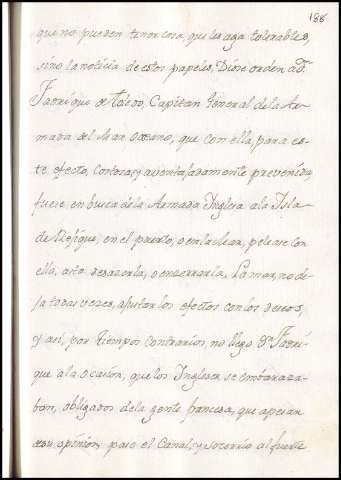 186
que no pueden tener cosa, que les aga tolerables,
sino la noticia de estos papeles, Diose orden a Dⁿ
Fadrique de toledo, Capitan General de la Ar-
mada del Mar Oceano, que con ella, para es-
te efecto, Costosa, y aventajadamente prevenida,
fuese en busca de la Armada Inglesa a la Isla
de Resigue, en el puerto, o en la Mar, pelease con
ella, asta desazerla, o enzerrarla, La mar, no de-
ja todas vezes, ajustar los efectos con los deseos,
y asi, por tiempos Contrarios, no llego Dⁿ Fadri-
que a la ocasion, que los Ingleses se embaraza-
ban, obligados de la gente francesa, que apesar
de su opinion, paso el Canal, y socorrio al fuerte